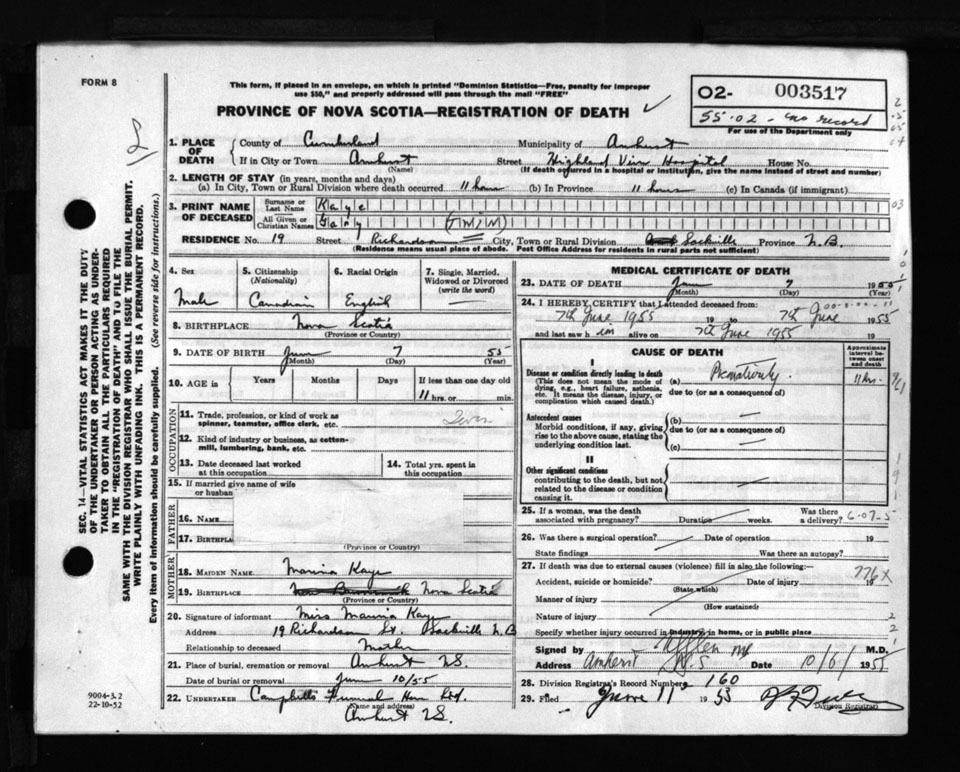 FORM 8
This form, if placed in an envelope, on which is printed "Dominion Statistics—Free, penalty for improper
use $50," and properly addressed will pass through the mail "FREE"
PROVINCE OF NOVA SCOTIA—REGISTRATION OF DEATH ✓
02- 003517
55-02 - no record
For use of the Department only
1. PLACE OF DEATH
County of Cumberland Municipality of Amherst
If in City or Town Amherst Street Highland View Hospital House No.
(Name) (If death occurred in a hospital or institution, give the name instead of street and number)
2. LENGTH OF STAY (in years, months and days)
(a) In City, Town or Rural Division where death occurred 11 hours (b) In Province 11 hours (c) In Canada (if immigrant)
3. PRINT NAME OF DECEASED
Surname or Last Name Kaye
All Given or Christian Names Gary (TWIN)
RESIDENCE No. 19 Street Richardson City, Town or Rural Division Sackville Province N.B.
(Residence means usual place of abode. Post Office Address for residents in rural parts not sufficient)
4. Sex
Male
5. Citizenship
(Nationality)
Canadian
6. Racial Origin
English
7. Single, Married, Widowed or Divorced
(write the word)
8. BIRTHPLACE Nova Scotia
(Province or Country)
9. DATE OF BIRTH June 7 55
(Month) (Day) (Year)
10. AGE in Years Months Days If less than one day old
11 hrs. or min.
OCCUPATION
11. Trade, profession, or kind of work as
spinner, teamster, office clerk, etc.
12. Kind of industry or business, as cotton-
mill, lumbering, bank, etc.
13. Date deceased last worked
at this occupation
14. Total yrs. spent in
this occupation
15. If married give name of wife
or husban
FATHER
16. NAME
17. BIRTHPLA
(Province or Country)
MOTHER
18. MAIDEN NAME Kaye
19. BIRTHPLACE New Brunswick Nova Scotia
(Province or Country)
20. Signature of informant Miss Kaye
Address 19 Richardson St. Sackville N.B
Relationship to deceased Mother
21. Place of burial, cremation or removal Amherst N.S.
Date of burial or removal June 10/55
22. UNDERTAKER Campbell's Funeral Home Ltd.
(Name and address)
Amherst N.S.
MEDICAL CERTIFICATE OF DEATH
23. DATE OF DEATH June 7 19
(Month) (Day) (Year)
24. I HEREBY CERTIFY that I attended deceased from:
7th June 1955 19 to 7th June 1955
and last saw h im alive on 7th June 1955 19
CAUSE OF DEATH
Approximate interval between onset and death
I
Disease or condition directly leading to death
(This does not mean the mode of
dying, e.g., heart failure, asthenia,
etc. It means the disease, injury, or
complication which caused death.)
(a) Prematurity. 11 hrs.
due to (or as a consequence of)
Antecedent causes
Morbid conditions, if any, giving
rise to the above cause, stating the
underlying condition last.
(b) —
due to (or as a consequence of)
(c) —
II
Other significant conditions
contributing to the death, but not
related to the disease or condition
causing it.
25. If a woman, was the death
associated with pregnancy? Duration weeks.
Was there
a delivery? 6-07-5
26. Was there a surgical operation? Date of operation 19
State findings Was there an autopsy?
27. If death was due to external causes (violence) fill in also the following:—
776X
Accident, suicide or homicide? Date of injury 19
(State which)
Manner of injury
(How sustained)
Nature of injury
Specify whether injury occurred in industry, in home, or in public place
Signed by M.D.
Address Amherst N.S Date 10/6/ 1955
28. Division Registrar's Record Number 160
29. Filed June 11 19 55
Division Registrar
SEC. 14—VITAL STATISTICS ACT MAKES IT THE DUTY
OF THE UNDERTAKER OR PERSON ACTING AS UNDER-
TAKER TO OBTAIN ALL THE PARTICULARS REQUIRED
IN THE "REGISTRATION OF DEATH" AND TO FILE THE
SAME WITH THE DIVISION REGISTRAR WHO SHALL ISSUE THE BURIAL PERMIT.
WRITE PLAINLY WITH UNFADING INK. THIS IS A PERMANENT RECORD.
Every item of information should be carefully supplied. (See reverse side for instructions.)
9004-3.2
22-10-52